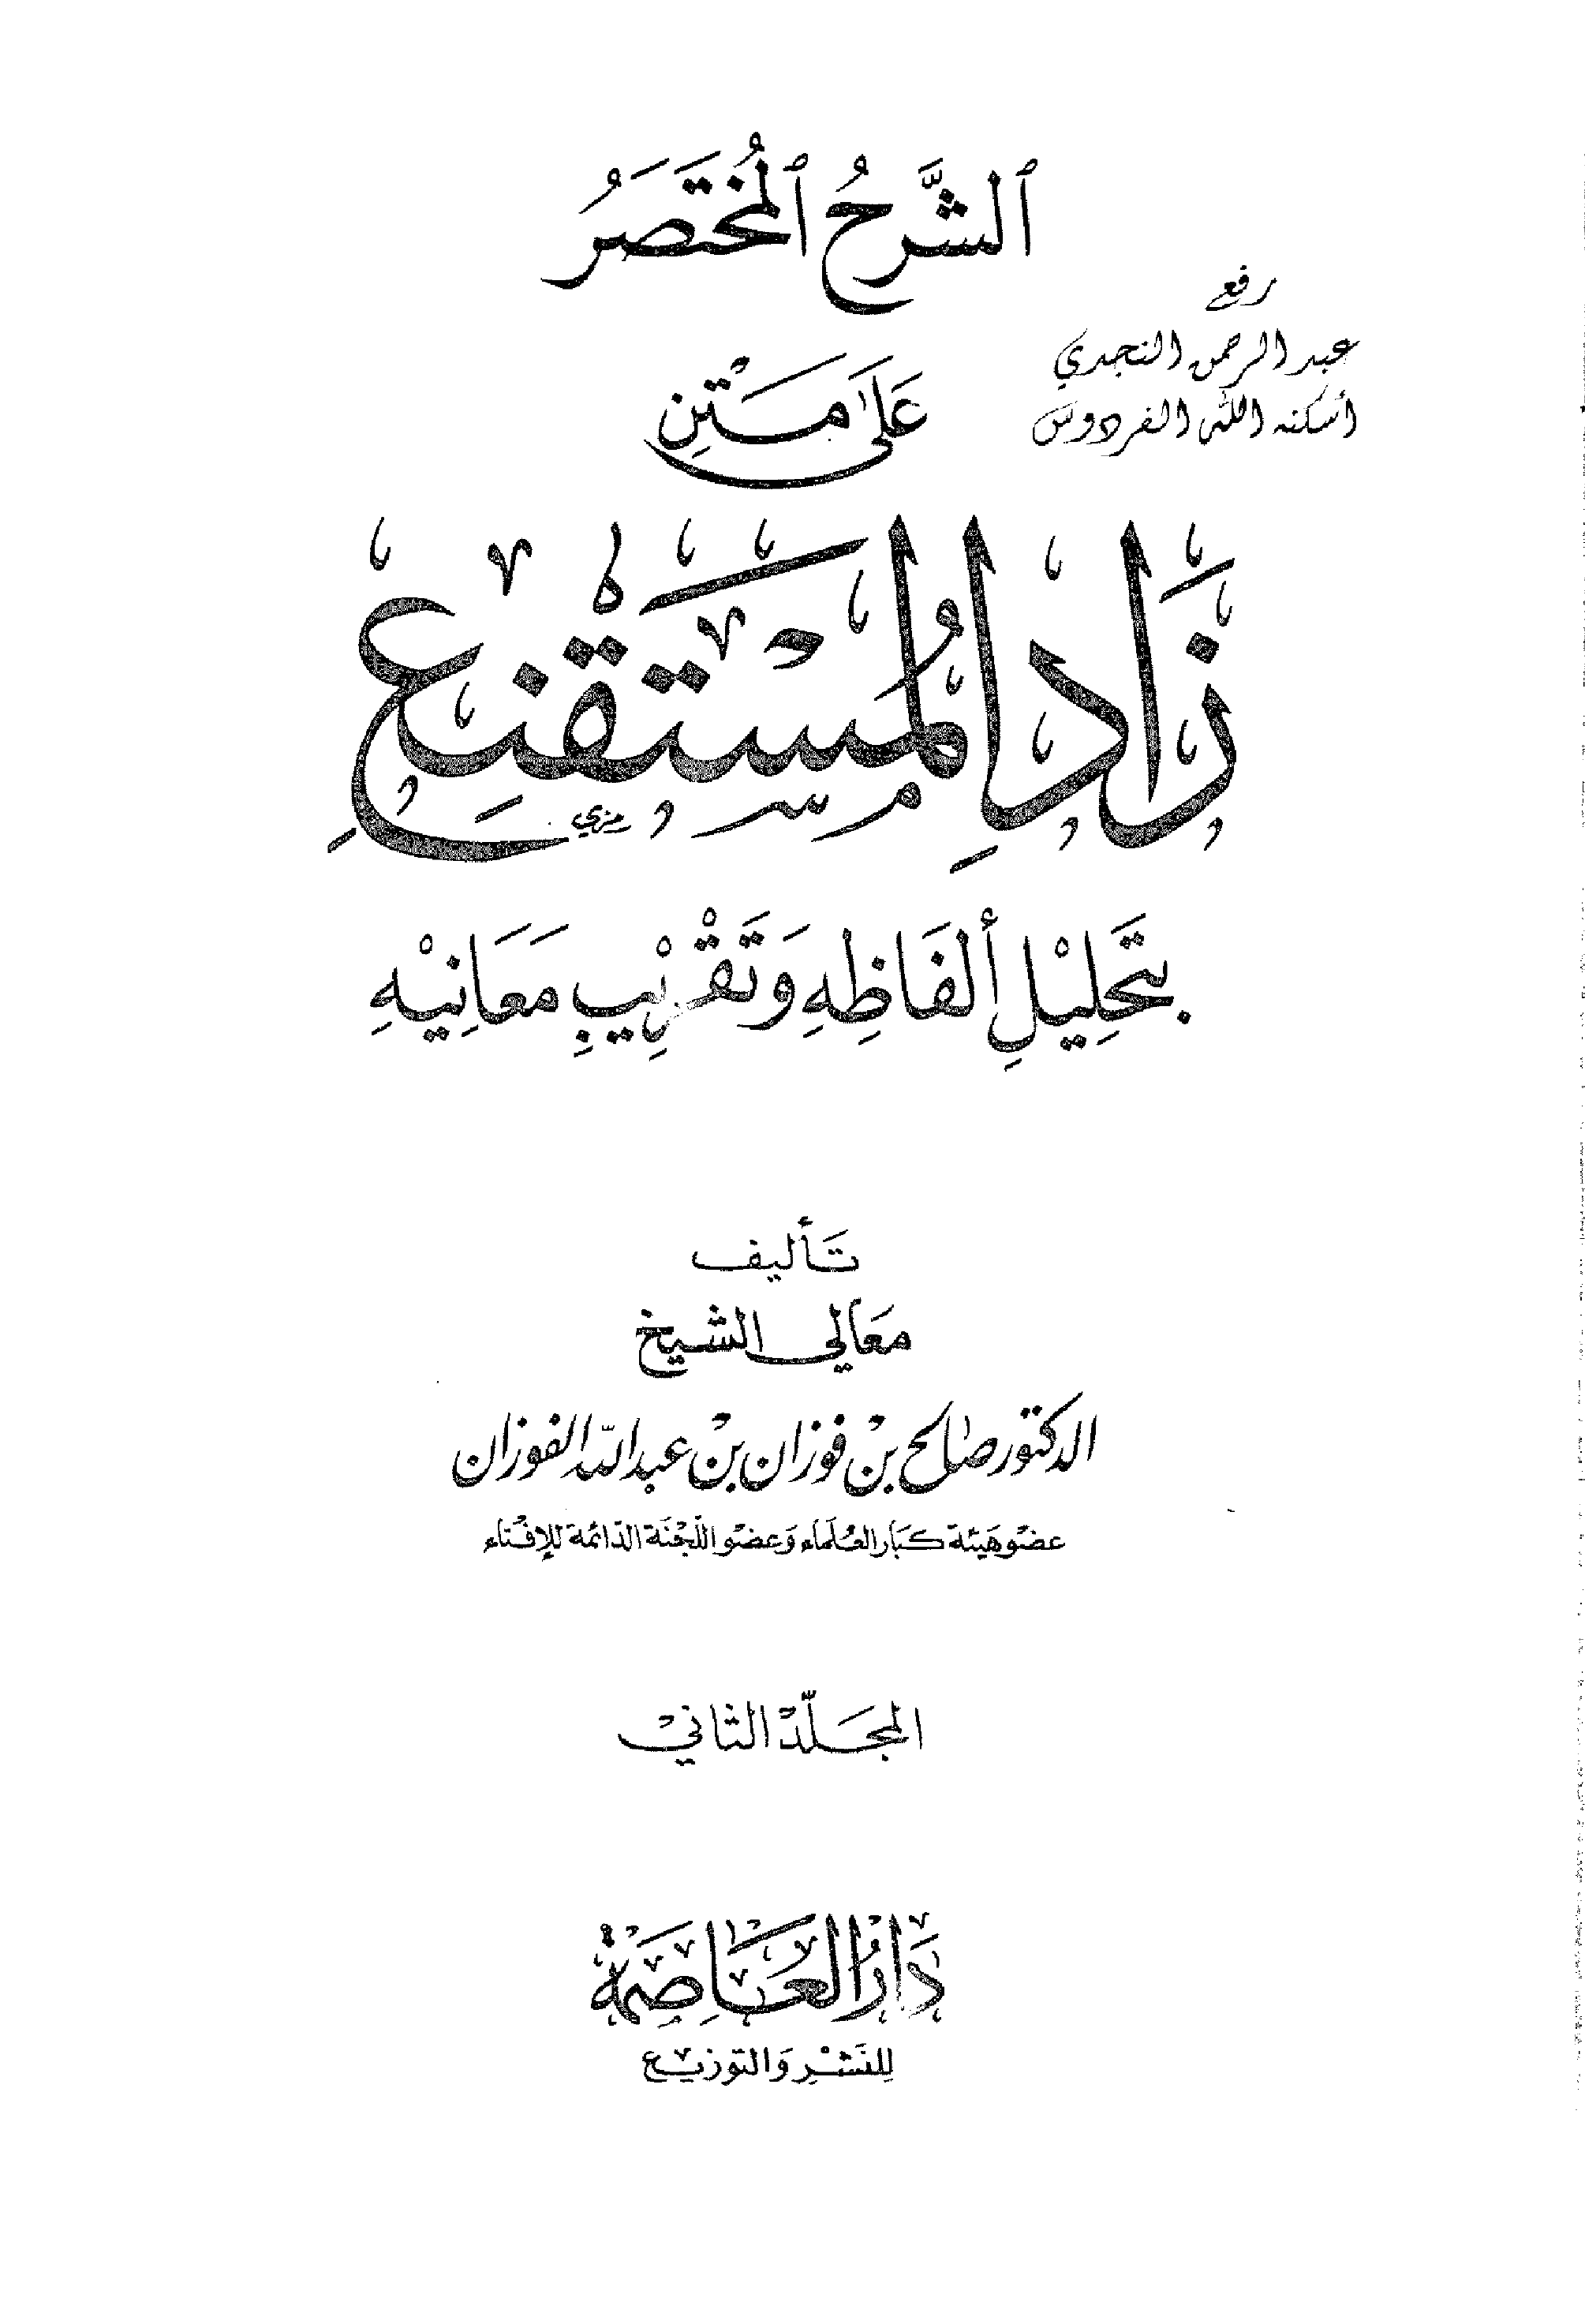 ٱلشَّرحُ ٱلمُختَصَرُ
رفع
عبد الرحمن النجدي
أسكنه الله الفردوس
عَلَىٰ مَتْنِ
زَادِ المُسْتَقْنِعِ
مزي
بتَحلِيْلِ ألفَاظِهِ وَتَقْرِيْبِ مَعَانِيْهِ
تَأليف
مَعَالي الشيخ
الدكتور صَالح بنْ فوزان بنْ عبد الله الفوزان
عضوْ هَيئة كبَار العُلَماء وَعضوْ اللّجْنَة الدّائمة للإفْتاء
المجَلّدْ الثانيْ
دَارُ العَاصِمَة
لِلنَشْرِ وَالتوزيْع